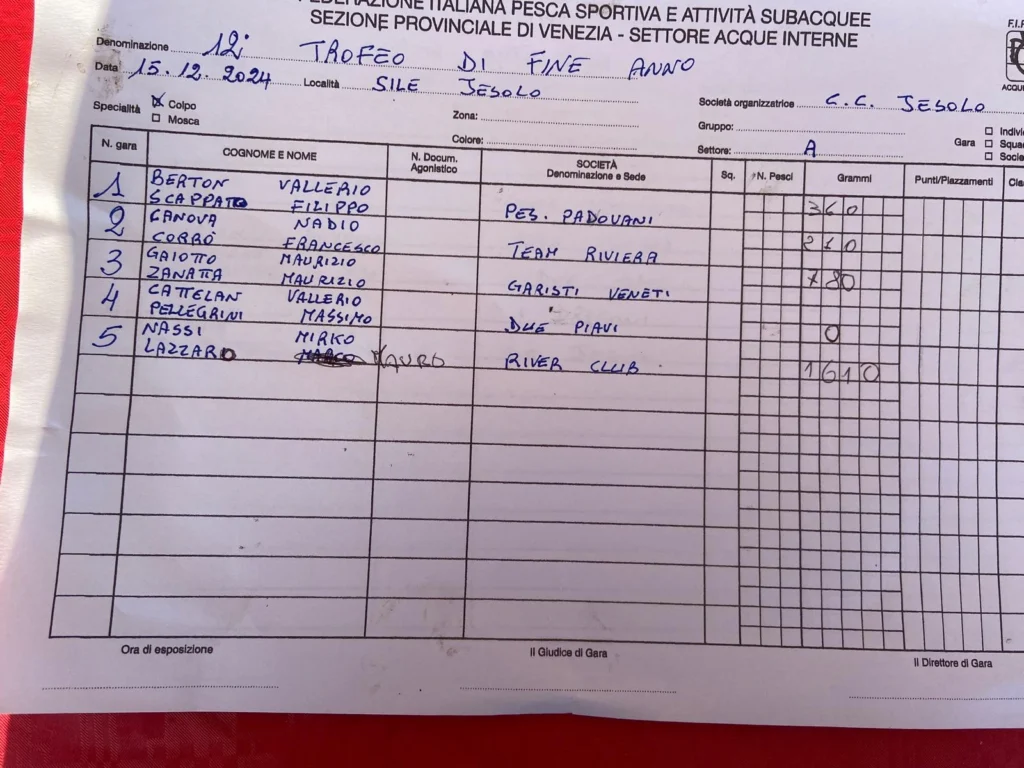 FEDERAZIONE ITALIANA PESCA SPORTIVA E ATTIVITÀ SUBACQUEE
SEZIONE PROVINCIALE DI VENEZIA - SETTORE ACQUE INTERNE
Denominazione 12° TROFEO DI FINE ANNO
Data 15.12.2024 Località SILE JESOLO Società organizzatrice C.C. JESOLO
Specialità Colpo Zona: Gruppo:
Mosca Colore: Settore: A Gara
N. gara COGNOME E NOME N. Docum. Agonistico SOCIETÀ Denominazione e Sede Sq. N. Pesci Grammi Punti/Piazzamenti
1 BERTON VALLERIO
SCAPPATO FILIPPO PES. PADOVANI 360
2 CANOVA NADIO
CORRÒ FRANCESCO TEAM RIVIERA 210
3 GAIOTTO MAURIZIO
ZANATTA MAURIZIO GARISTI VENETI 780
4 CATTELAN VALLERIO
PELLEGRINI MASSIMO DUE PIAVI 0
5 NASSI MIRKO
LAZZARO MAURO RIVER CLUB 1610
Ora di esposizione Il Giudice di Gara Il Direttore di Gara